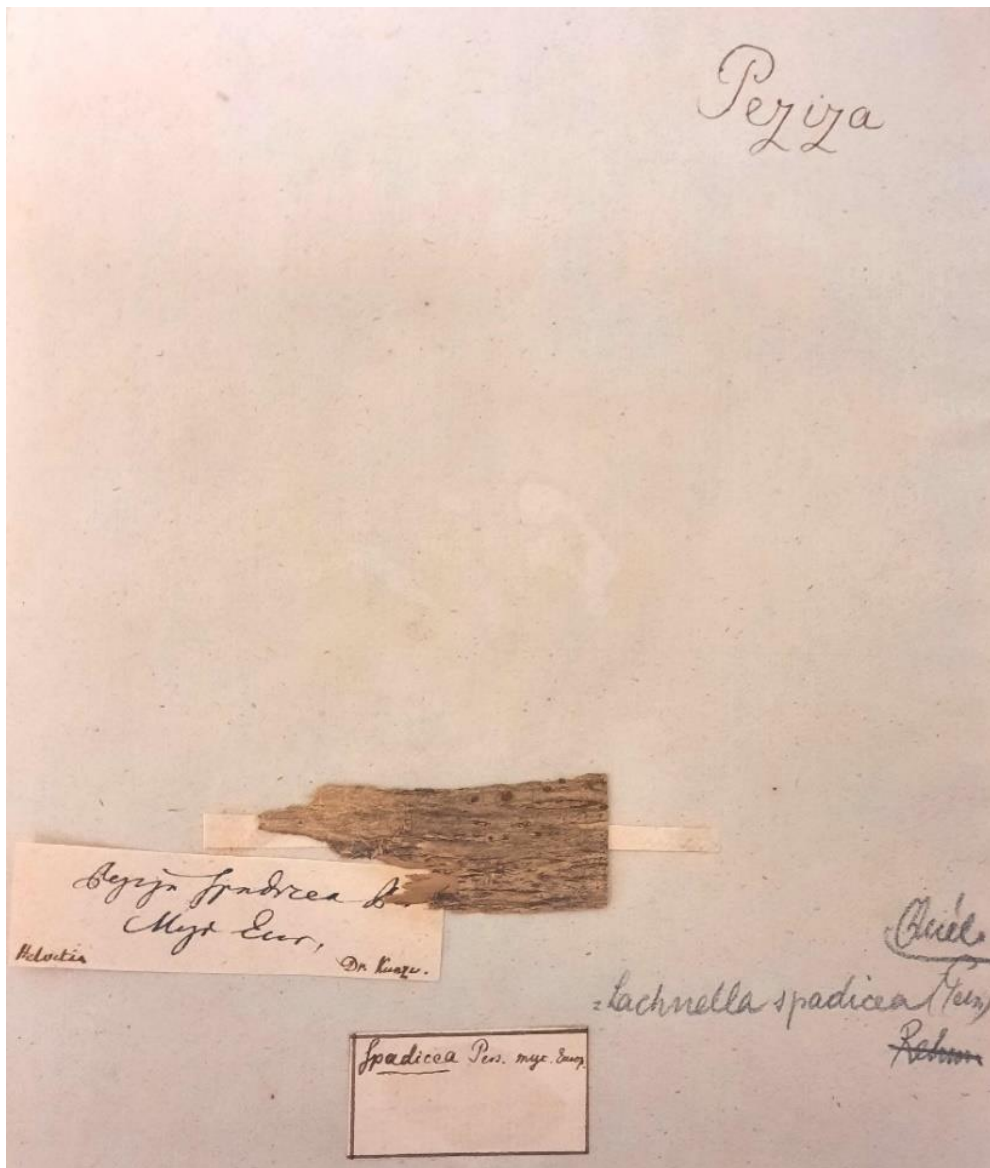 Peziza
Peziza spadicea P.
Myc. Eur.
Helvetia
Dr. Kunze.
Quél.
= Lachnella spadicea (Pers)
Rehm
Spadicea Pers. myc. Europ.